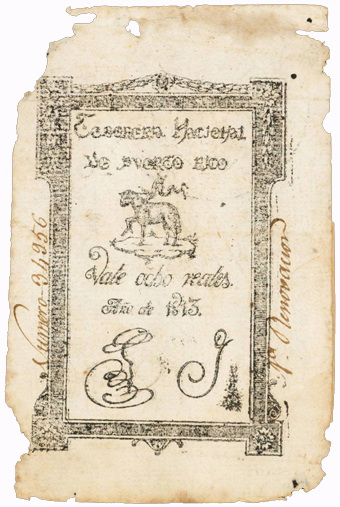 Tesoreria Nacional
de Puerto Rico
Vale ocho reales.
Año de 1813.
Numero 34956
Renovacion